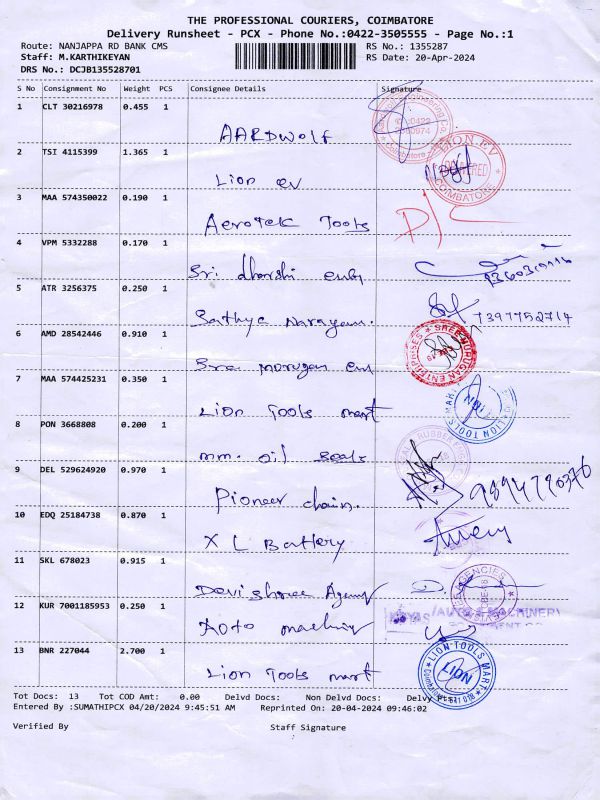 THE PROFESSIONAL COURIERS, COIMBATORE
Delivery Runsheet - PCX - Phone No.:0422-3505555 - Page No.:1
Route: NANJAPPA RD BANK CMS RS No.: 1355287
Staff: M.KARTHIKEYAN RS Date: 20-Apr-2024
DRS No.: DCJB135528701
S No Consignment No Weight PCS Consignee Details Signature
1 CLT 30216978 0.455 1
AARDWOLF
2 TSI 4115399 1.365 1
LION EV
COIMBATORE
Lion ev
3 MAA 574350022 0.190 1
Aerotek Tools
4 VPM 5332288 0.170 1
Sri dharshi
5 ATR 3256375 0.250 1
Sathya Narayana. 7397752714
6 AMD 28542446 0.910 1
SREE MURUGAN ENTERPRISES
Sree murugan
7 MAA 574425231 0.350 1
LION TOOLS MART
Lion Tools mart
8 PON 3668808 0.200 1
mm. oil seals
9 DEL 529624920 0.970 1
Pioneer chain. 9894770376
10 EDQ 25184738 0.870 1
XL Battery
11 SKL 678023 0.915 1
AGENCIES
Devi shree Agency
12 KUR 7001185953 0.250 1
AUTO MACHINERY
Auto machinery
13 BNR 227044 2.700 1
LION TOOLS MART
LION
Lion Tools mart
Tot Docs: 13 Tot COD Amt: 0.00 Delvd Docs: Non Delvd Docs: Delvy Pt
Entered By :SUMATHIPCX 04/20/2024 9:45:51 AM Reprinted On: 20-04-2024 09:46:02
Verified By Staff Signature